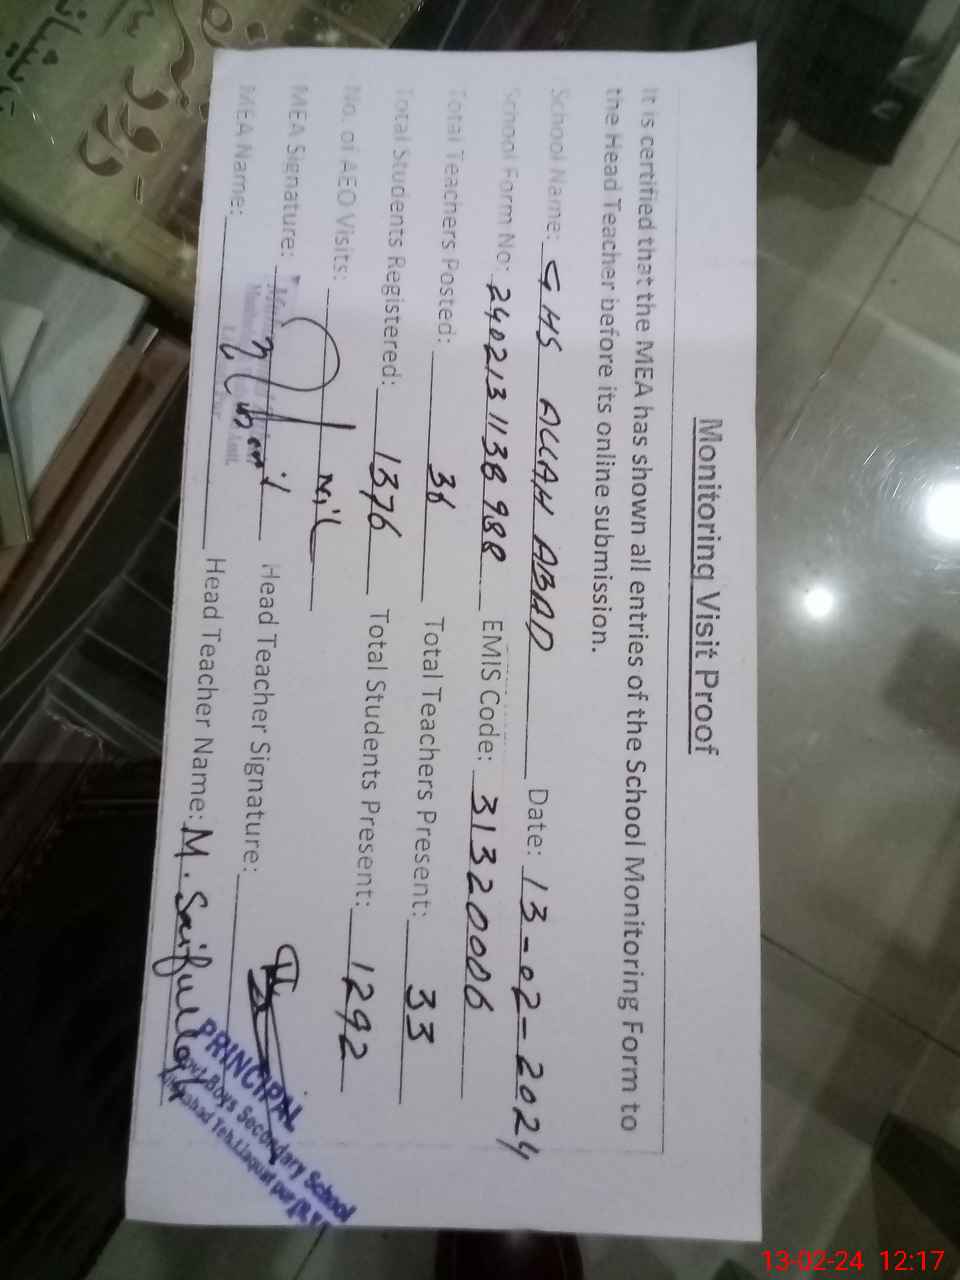 Monitoring Visit Proof
It is certified that the MEA has shown all entries of the School Monitoring Form to
the Head Teacher before its online submission.
School Name: GHS ALLAH ABAD Date: 13-02-2024
School Form No: 2402131138988 EMIS Code: 31320006
Total Teachers Posted: 36 Total Teachers Present: 33
Total Students Registered: 1376 Total Students Present: 1292
No. of AEO Visits: Nil
MEA Signature: Head Teacher Signature:
MEA Name: Head Teacher Name: M. Saifullah
PRINCIPAL
Govt. Boys Secondary School
Teh. Liaquat pur
13-02-24 12:17